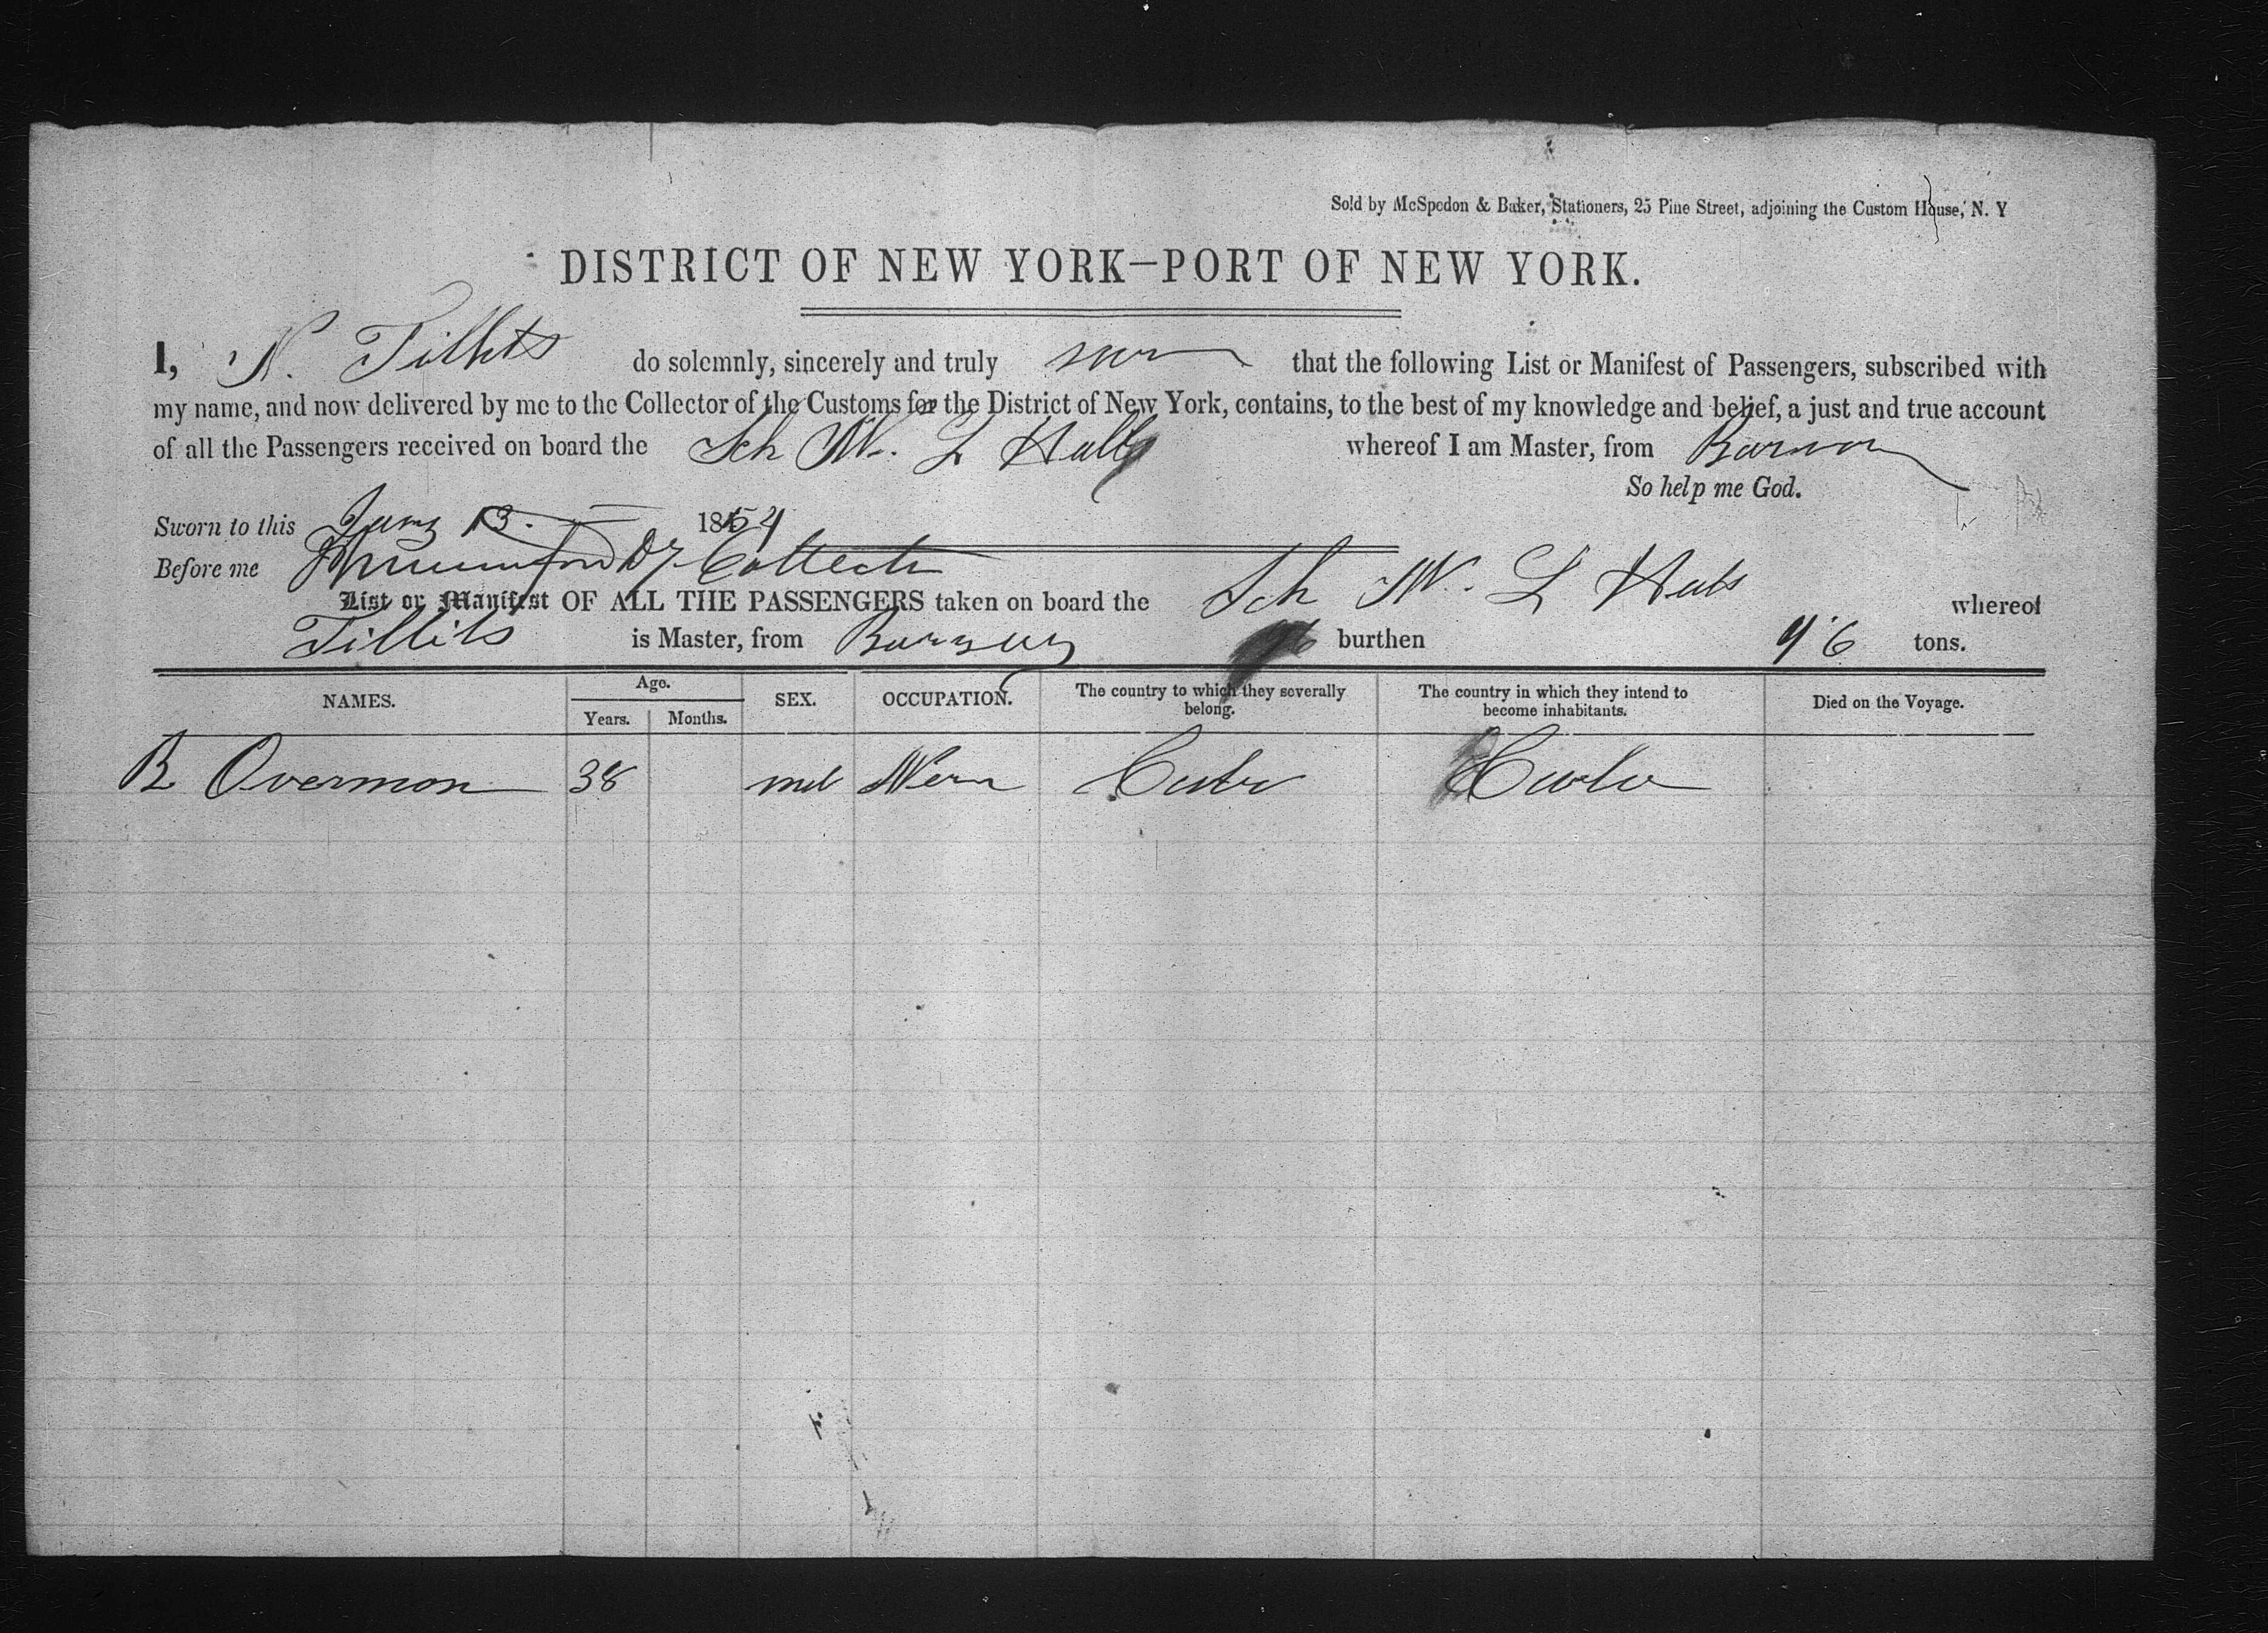 Sold by McSpedon & Baker, Stationers, 25 Pine Street, adjoining the Custom House, N. Y
DISTRICT OF NEW YORK—PORT OF NEW YORK.
I, N. Tibbits do solemnly, sincerely and truly swear that the following List or Manifest of Passengers, subscribed with
my name, and now delivered by me to the Collector of the Customs for the District of New York, contains, to the best of my knowledge and belief, a just and true account
of all the Passengers received on board the Sch W. L whereof I am Master, from
So help me God.
Sworn to this Jany 13. 1854
Before me Dy Collector
List or Manifest OF ALL THE PASSENGERS taken on board the Sch W. L whereof
Tibbits is Master, from burthen 96 tons.
NAMES. Age. Years. Months. SEX. OCCUPATION. The country to which they severally belong. The country in which they intend to become inhabitants. Died on the Voyage.
R Overmon 38 Cuba Cuba